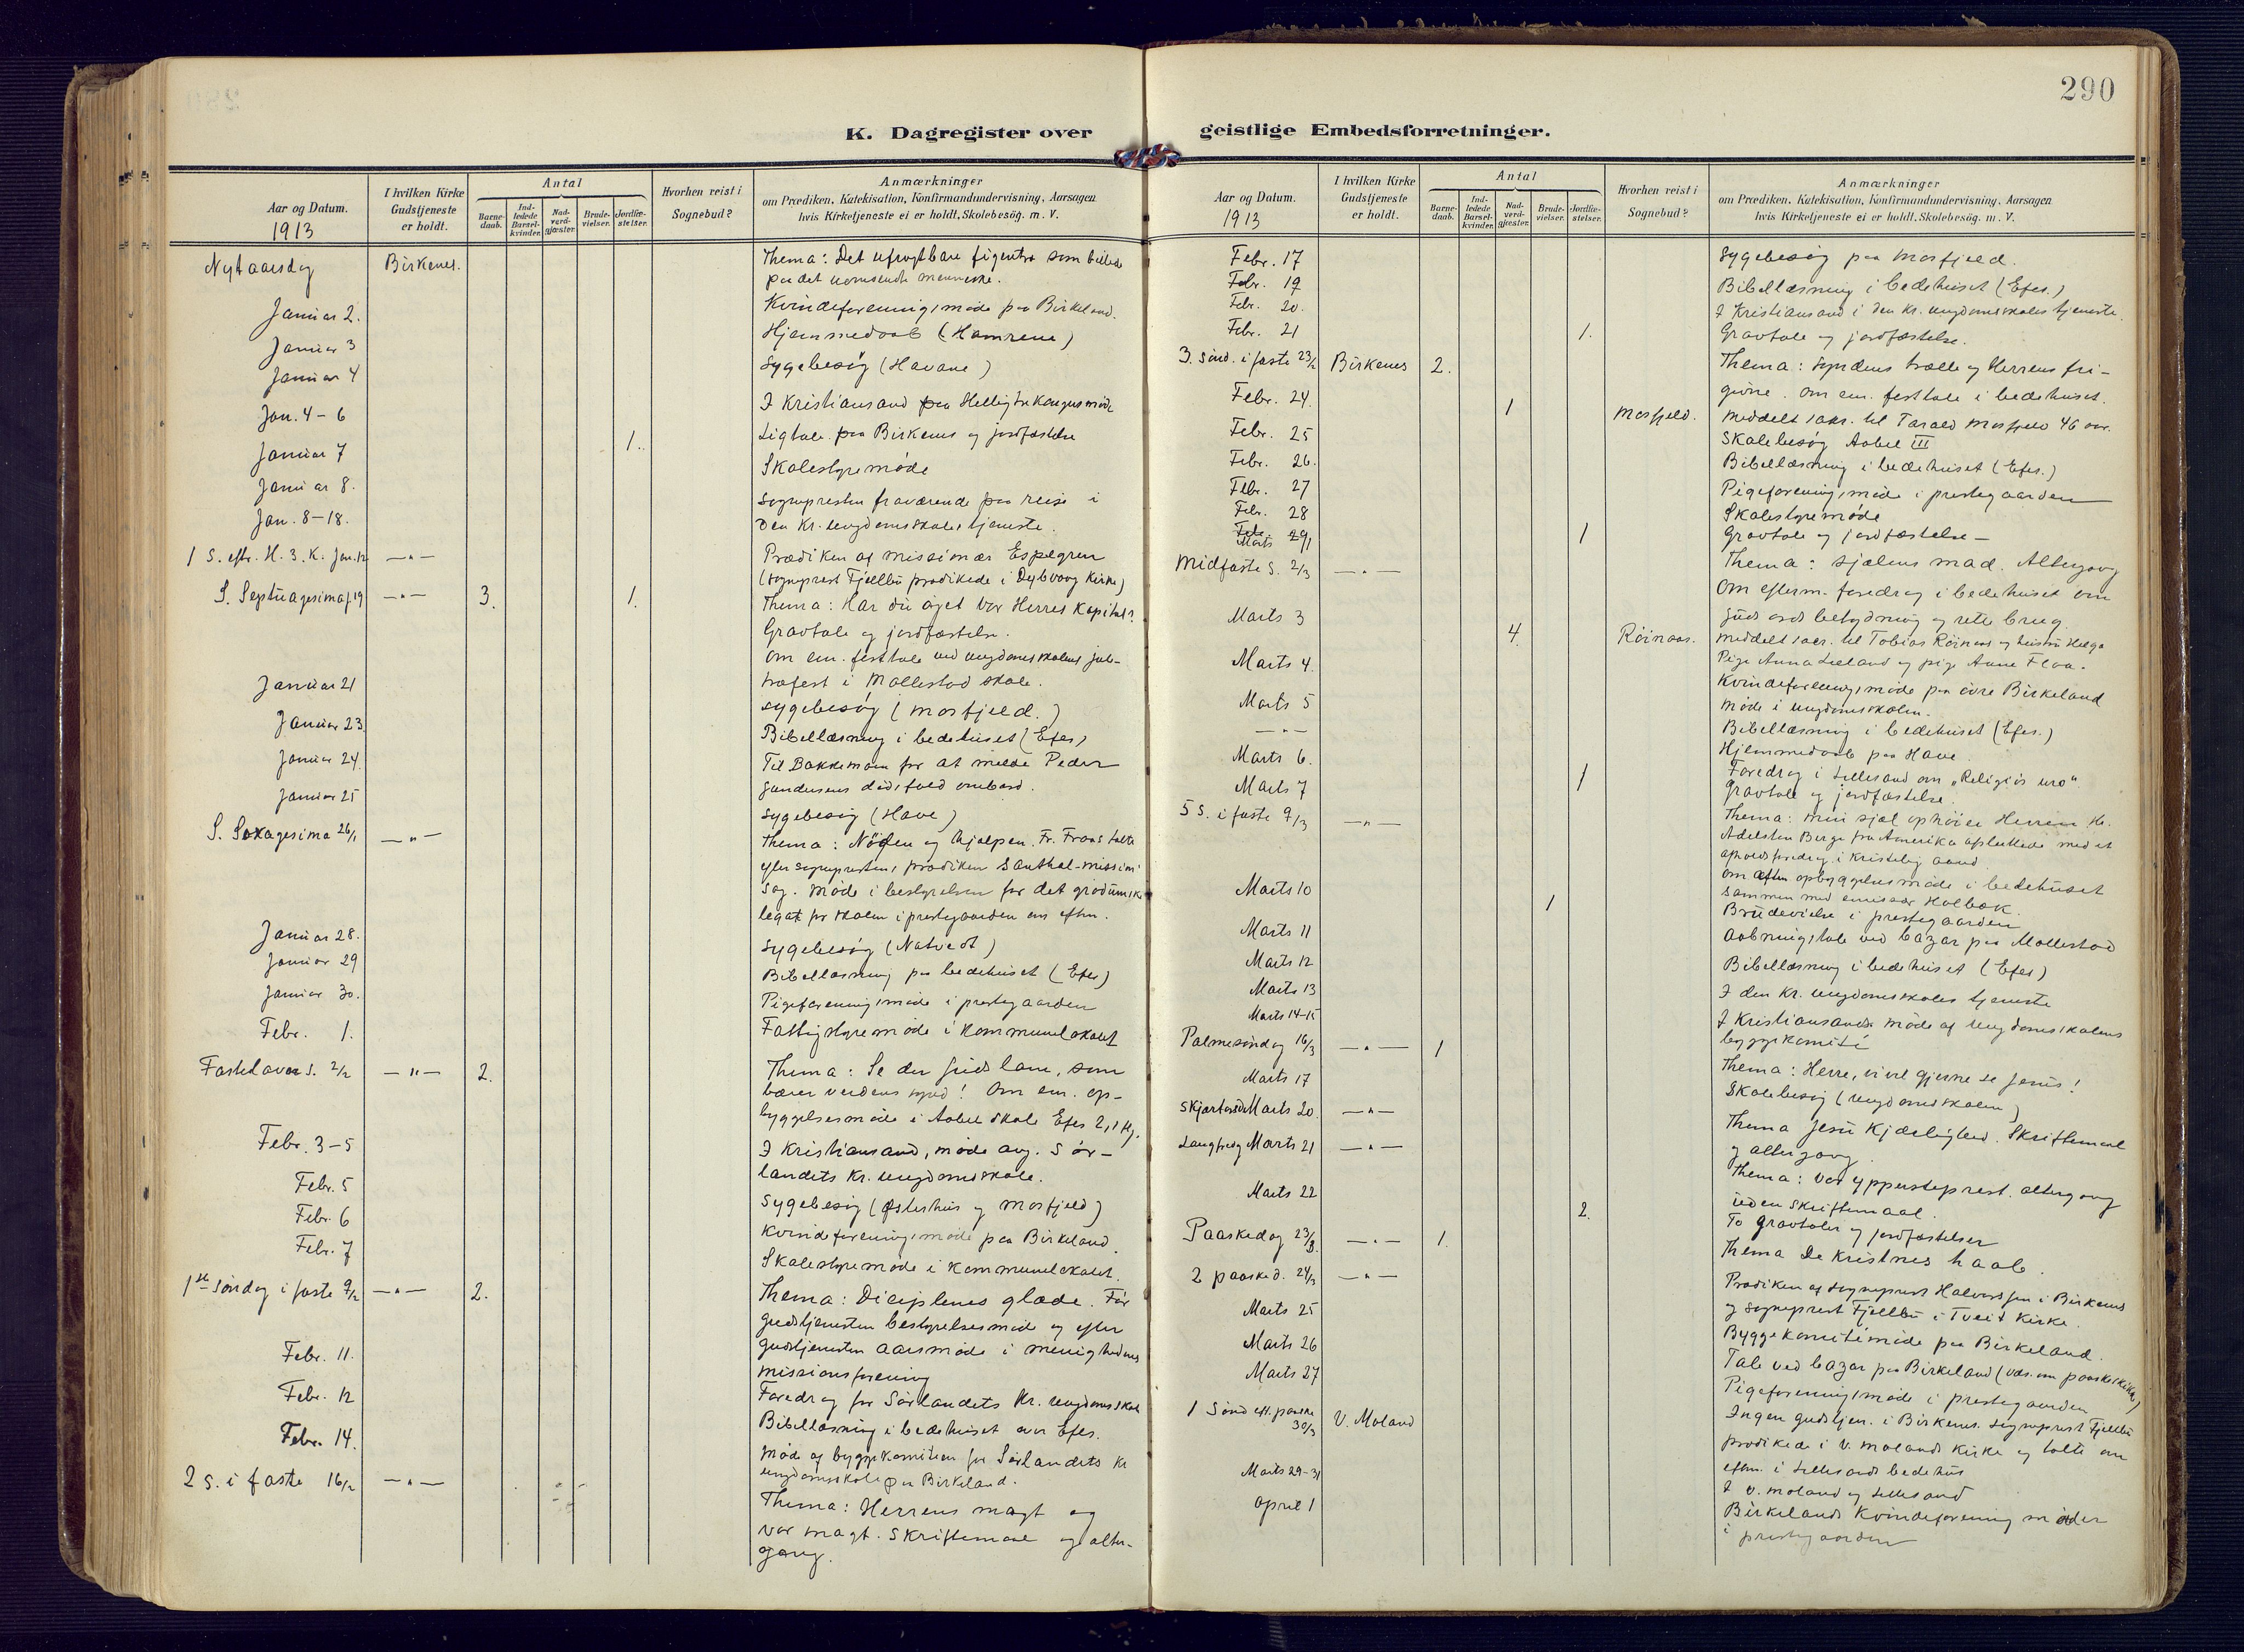 290
K. Dagregister over geistlige Embedsforretninger.
Aar og Datum. 1913
I hvilken Kirke Gudstjeneste er holdt.
Antal
Barne-daab.
Ind-ledede Barsel-kvinder.
Nad-verd-gjæster.
Brude-vielser.
Jordfæ-stelser.
Hvorhen reist i Sognebud?
Anmærkninger
om Prædiken, Katekisation, Konfirmandundervisning, Aarsagen
hvis Kirketjeneste ei er holdt, Skolebesøg. m. V.
Nytaarsdag Birkenes. Thema: Det ufrugtbare figentræ som billede
paa det uomvendte menneske.
Januar 2. Kvindeforeningsmøde paa Birkeland.
Januar 3 Hjemmedaab (Hamrene)
Januar 4 Sygebesøg (Havane)
Jan. 4-6 I Kristiansand paa Helligtrekongersmøde
Januar 7 1. Ligtale paa Birkenes og jordfæstelse
Januar 8. Skolestyremøde
Jan. 8-18. Sognepresten fraværende paa reise i
Den Kr. ungdomsskoles tjeneste.
1 S. eftr. H. 3. K. Jan. 12 —„— Prædiken af missionær Espegren
(sogneprest Fjellbu prædikede i Dybvaag Kirke)
S. Septuagesima J. 19 —„— 3. 1. Thema: Har du øget Vor Herres Kapital?
Gravtale og jordfæstelse.
Om em. festtale ved ungdomsskolens jule-
træfest i Mollestad skole.
Januar 21 Sygebesøg (Mosfjeld.)
Januar 23. Bibellæsning i bedehuset (Efes)
Januar 24. Til Bakkemoen for at melde Peder
Gundersens dødsfald ombord.
Januar 25 Sygebesøg (Have)
S. Sexagesima 26/1 —„— Thema: Nøden og hjælpen. Fr. Fraas talte
efter sogneprestens prædiken Santhal-missions
sag. Møde i bestyrelsen for det
legat for skolen i prestegaarden em eftm.
Januar 28. Sygebesøg (Natvedt)
Januar 29 Bibellæsning paa bedehuset (Efes)
Januar 30. Pigeforeningsmøde i prestegaarden
Febr. 1. Fattigstyremøde i Kommunelokalet
Fastelavns S. 2/2 —„— 2. Thema: Se der Guds lam, som
bærer verdens synd! Om em. op-
byggelsesmøde i Aabel skole Efes 2,1 flg.
Febr. 3-5 I Kristiansand, møde ang. Sør-
landets kr. ungdomsskole.
Febr. 5 Sygebesøg (Østerhus og Mosfjeld)
Febr. 6 Kvindeforeningsmøde paa Birkeland.
Febr. 7 Skolestyremøde i Kommunelokalet.
1ste søndag i faste 9/2 —„— 2. Thema: Diciplenes glæde. Før
gudstjenesten bestyrelsesmøde og efter
gudstjenesten aarsmøde i menighedens
missionsforening
Febr. 11. Foredrag for Sørlandets Kr. ungdomsskole
Febr. 12 Bibellæsning i bedehuset over Efes.
Febr. 14. Møde af byggekomiteen for Sørlandets kr
ungdomsskole paa Birkeland.
2 S. i faste 16/2 —„— Thema: Herrens magt og
vor magt. Skriftemaal og alter-
gang.
Aar og Datum. 1913
I hvilken Kirke Gudstjeneste er holdt.
Antal
Barne-daab.
Ind-ledede Barsel-kvinder.
Nad-verd-gjæster.
Brude-vielser.
Jordfæ-stelser.
Hvorhen reist i Sognebud?
Anmærkninger
om Prædiken, Katekisation, Konfirmandundervisning, Aarsagen
hvis Kirketjeneste ei er holdt, Skolebesøg. m. V.
Febr. 17 Sygebesøg paa Mosfjeld.
Febr. 19 Bibellæsning i bedehuset (Efes.)
Febr. 20. I Kristiansand i den kr. ungdomsskoles tjeneste.
Febr. 21 1. Gravtale og jordfæstelse.
3. Sønd. i faste 23/2 Birkenes 2. Thema: Syndens trælle og Herrens fri-
givne. Om em. festtale i bedehuset.
Febr. 24. 1 Mosfjeld. Meddelt sakr. til Tarald Mosfjeld 46 aar.
Febr. 25 Skolebesøg Aabel III
Febr. 26. Bibellæsning i bedehuset (Efes.)
Febr. 27 Pigeforeningsmøde i prestegaarden
Febr. 28 Skolestyremøde
Marts 1 1 Gravtale og jordfæstelse —
Midfaste S. 2/3 —„— Thema: Sjælens mad. Altergang
Om efterm. foredrag i bedehuset om
Guds ords betydning og rette brug.
Marts 3 4. Røinaas. Meddelt sacr. til Tobias Røinaas og hustru Helga
Pige Anna Lieland og pige Anne Flaa.
Marts 4. Kvindeforeningsmøde paa øvre Birkeland
Møde i ungdomsskolen.
Marts 5 Bibellæsning i bedehuset (Efes.)
—„— Hjemmedaab paa Have.
Marts 6. Foredrag i Lillesand om „Religiøs uro“
Marts 7 1 Gravtale og jordfæstelse.
5 S. i faste 9/3 —„— Thema: Min sjæl ophøier Herren Hr.
Adelsten Berge fra Amerika afsluttede med et
foredrag i kristelig aand
om aften opbyggelsesmøde i bedehuset
sammen med emissær Holbæk.
Marts 10 1 Brudevielse i prestegaarden
Marts 11 Aabningstale ved bazar paa Mollestad
Marts 12 Bibellæsning i bedehuset (Efes)
Marts 13 I den kr. ungdomsskoles tjeneste
Marts 14-15 I Kristiansands møde af ungdomsskolens
byggekomité
Palmesøndag 16/3 —„— 1 Thema: Herre, vi vil gjerne se Jesus!
Marts 17 Skolebesøg (ungdomsskolen)
Skjærtorsd Marts 20. —„— Thema Jesu Kjærlighed. Skriftemaal
og altergang.
Langfredg Marts 21 —„— Thema: Vor ypperstepræst. altergang
uden skriftemaal.
Marts 22 2. To gravtaler og jordfæstelser
Paaskedag 23/3. —„— 1. Thema De kristnes haab.
2 paasked. 24/3 —„— Prædiken af sogneprest Halvorssen i Birkenes
og sogneprest Fjellbu i Tveit Kirke.
Marts 25 Byggekomitémøde paa Birkeland.
Marts 26 Tale ved bazar paa Birkeland
Marts 27 Pigeforeningsmøde i prestegaarden
1 Sønd eft. paaske 30/3 V. Moland Ingen gudstjen. i Birkenes. Sogneprest Fjellbu
prædikede i V. Molands Kirke og talte om
eftm. i Lillesands bedehus
Marts 29-31 I V. Moland og Lillesand
April 1 Birkelands Kvindeforening møder
i prestegaarden